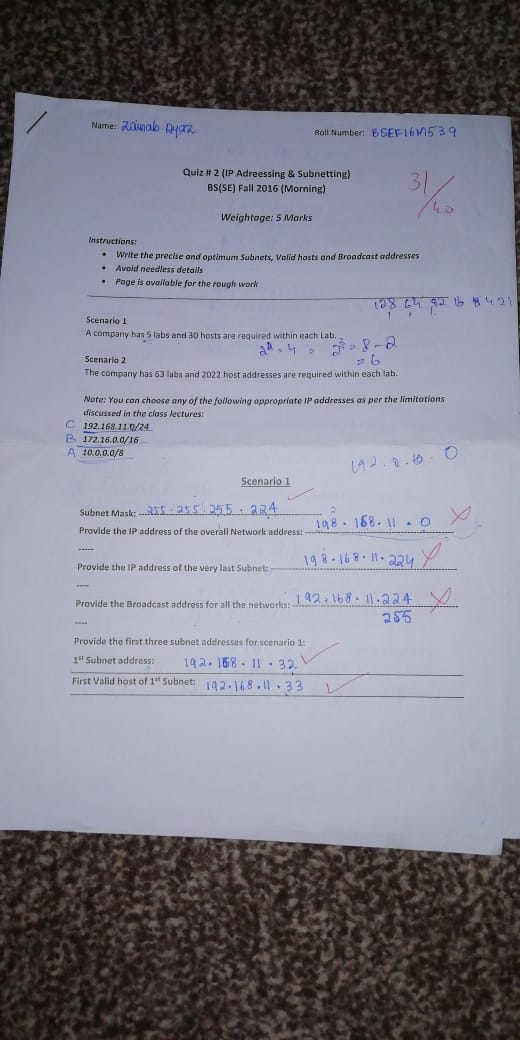 Name: Zainab Ayaz Roll Number: BSEF16M539
Quiz # 2 (IP Adreessing & Subnetting)
BS(SE) Fall 2016 (Morning)
31/40
Weightage: 5 Marks
Instructions:
• Write the precise and optimum Subnets, Valid hosts and Broadcast addresses
• Avoid needless details
• Page is available for the rough work
128 64 32 16 8 4 2 1
Scenario 1
A company has 5 labs and 30 hosts are required within each Lab.
2² = 4 = 2³ = 8 - 2
= 6
Scenario 2
The company has 63 labs and 2022 host addresses are required within each lab.
Note: You can choose any of the following appropriate IP addresses as per the limitations
discussed in the class lectures:
C 192.168.11.0/24
B 172.16.0.0/16
A 10.0.0.0/8
Scenario 1
Subnet Mask: 255.255.255.224
Provide the IP address of the overall Network address: 198.168.11.0
Provide the IP address of the very last Subnet: 198.168.11.224
Provide the Broadcast address for all the networks: 192.168.11.224
255
Provide the first three subnet addresses for scenario 1:
1st Subnet address: 192.168.11.32
First Valid host of 1st Subnet: 192.168.11.33